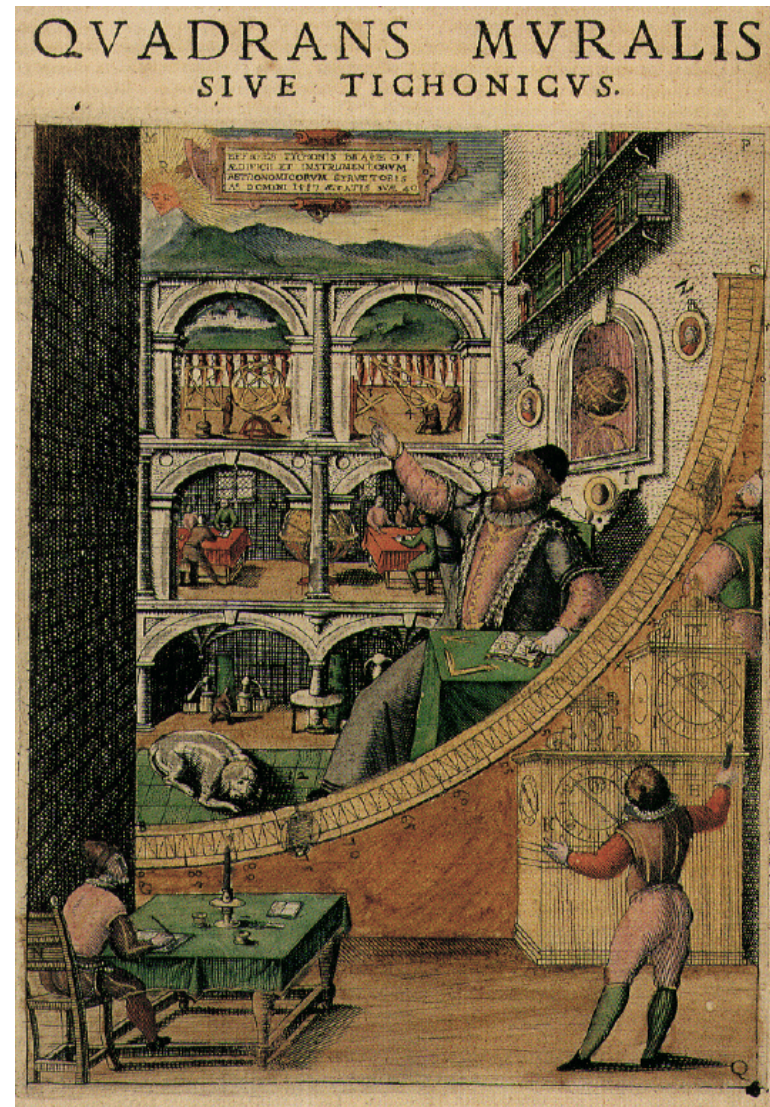 QVADRANS MVRALIS
SIVE TICHONICVS.
EFFIGIES TYCHONIS BRAHE O. F.
ÆDIFICII ET INSTRUMENTORVM
ASTRONOMICORVM STRVCTORIS
Aº DOMINI 1587 ÆTATIS SVÆ 40
P
Z
Y
Q